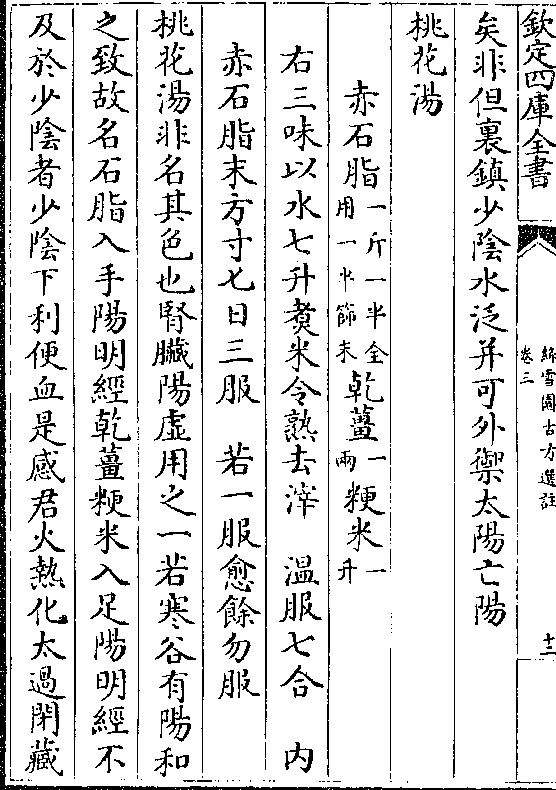 欽定四庫全書
絳雪園古方選註
卷三
十二
矣非但裏鎮少陰水泛并可外禦太陽亡陽
桃花湯
赤石脂一斤一半全用一半篩末乾薑一兩粳米一升
右三味以水七升煑米令熟去滓 溫服七合 内
赤石脂末方寸匕日三服 若一服愈餘勿服
桃花湯非名其色也腎臟陽虛用之一若寒谷有陽和
之致故名石脂入手陽明經乾薑粳米入足陽明經不
及於少陰者少陰下利便血是感君火熱化太過閉藏